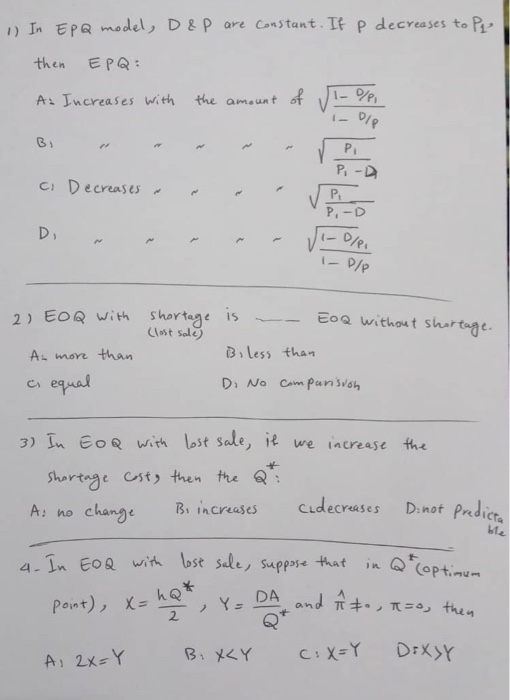 1) In EPQ model, D & P are constant. If P decreases to P₁,
then EPQ:
A: Increases with the amount of √(1 - D/P₁ / 1 - D/P)
B: " " " " " √(P₁ / P₁ - D)
C: Decreases " " " " √(P₁ / P₁ - D)
D: " " " " " √(1 - D/P₁ / 1 - D/P)
2) EOQ with shortage is —— EOQ without shortage.
(lost sale)
A: more than B: less than
C: equal D: No comparision
3) In EOQ with lost sale, if we increase the
shortage cost, then the Q*:
A: no change B: increases C: decreases D: not predictable
4- In EOQ with lost sale, suppose that in Q* (optimum
point), X = hQ*/2, Y = DA/Q* and π̂ ≠ 0, π = 0, then
A: 2X = Y B: X < Y C: X = Y D: X > Y